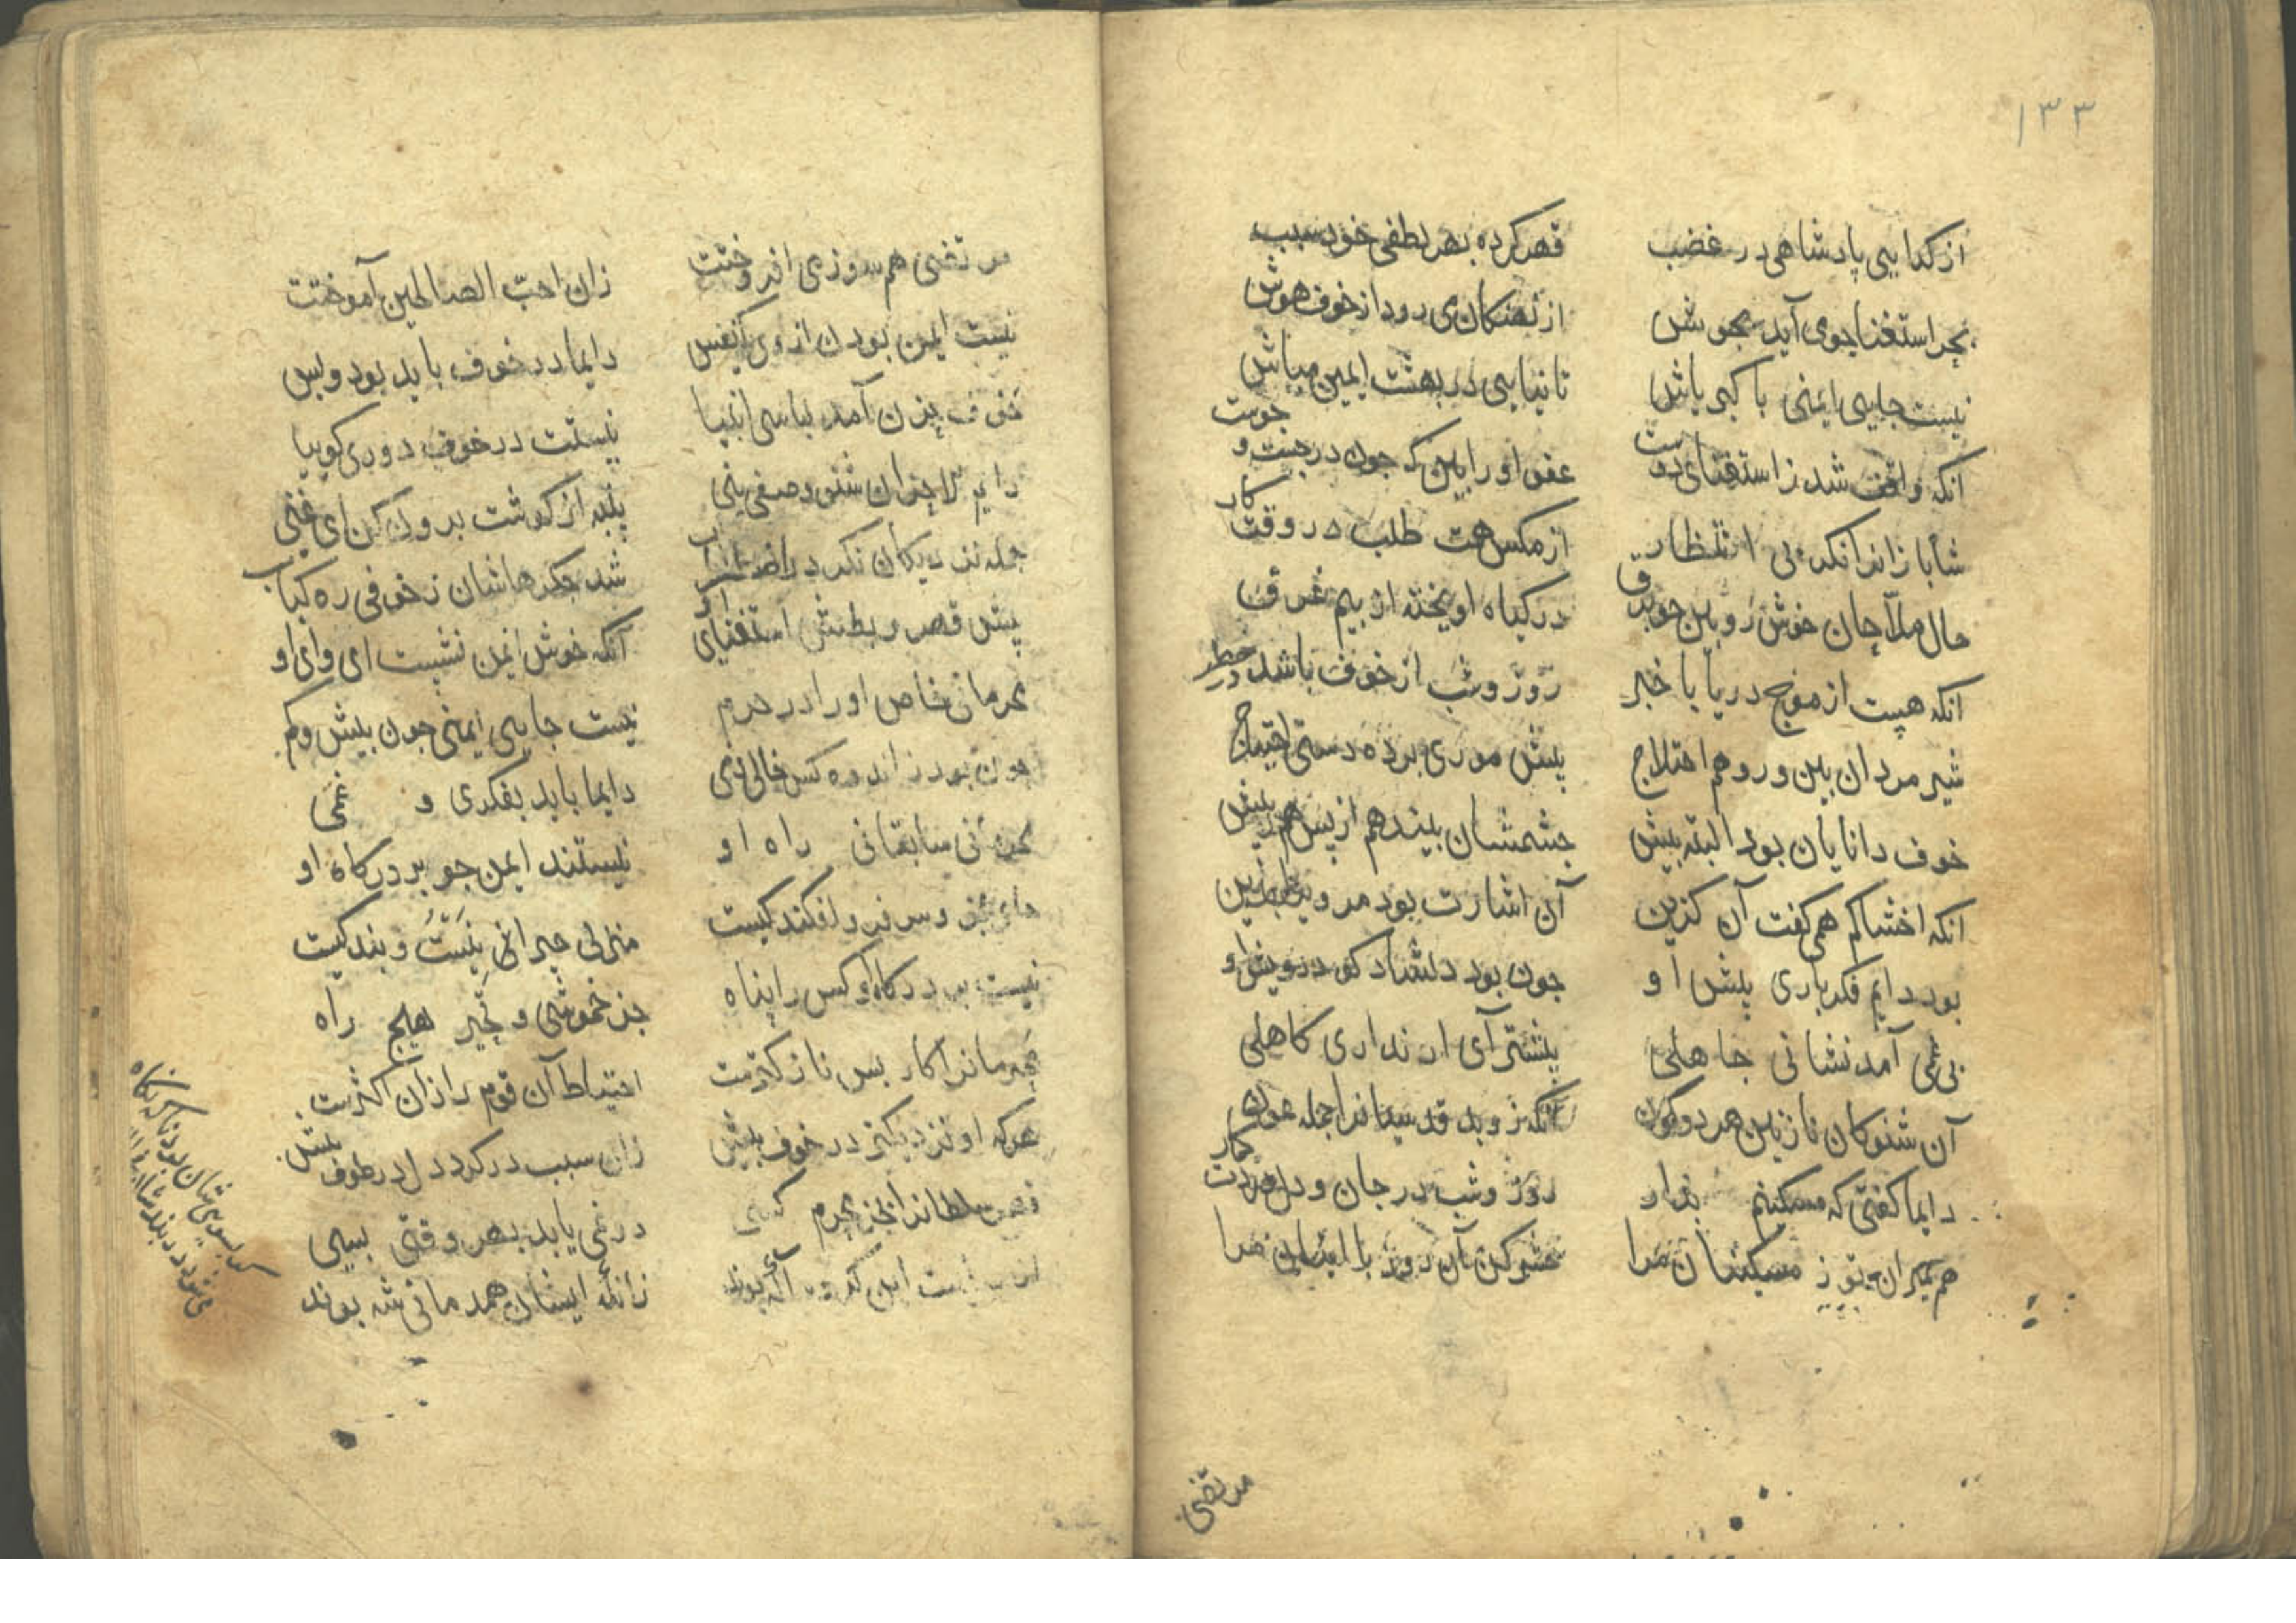 ۱۳۳
از کدایی پادشاهی در غضب قهر کرده بهر لطفی خود سبب
بحر استغنا چوی آید بجوش از نهنکان می رود از خوف هوش
نیست جایی ایمنی با کبریاش تا نیایی در بهشت ایمین مباش
آنکه واقف شد ز استغنای دوست عفو او را بین که جون در جست و جوست
شابازانرا نکر بی انتظار از مکس همت طلب در وقت کار
حال ملاحان خوش رو بین جو برق در کیاه اویخته از بیم غرق
آنکه هست از موج دریا با خبر روز و شب از خوف باشد در خطر
شیر مردان بین و روهم اختلاج پیش موری برده دستی احتیاج
خوف دانایان بود البته بیش جشمشان بیند هم از پس هم ز پیش
آنکه اخشاکم همی کفت آن کزین آن اشارت بود مر
بود دایم فکر باری پیش او جون بود دلشاد کو درویش او
بی غمی آمد نشانی جاهلی پیشتر آی ار نداری کاهلی
آن شنو کان نازنین هر دو کون آنکه زو بد قدسیانرا جمله عون
دایما کفتی که مسکینم بدار روز و شب در جان و دل
هم بمیران تو ز مسکینان مرا حشر کن آن روز با ایشان مرا
مرتضی
مرتضی هم سوزی اندوخت زان احب الصالحین آموخت
نیست ایمن بودن از وی یک نفس دایما در خوف باید بود و بس
خوف حزن آمد لباس انبیا نیست در خوف دوری کوییا
دایم لاحزان شنو وصفی بنی پنبه از کوشت برون کن ای غنی
جمله نزدیکان نکر در اضطراب شد جکرهاشان ز خوفی ره کباب
پیش قهر و بطش استغنای او آنکه خوش ایمن نشیست ای وای او
محرمانی خاص او را در حرم نیست جایی ایمنی جون بیش و کم
جون بود ز اندوه کس خالی دمی دایما باید بفکری و غمی
سابقانی راه او نیستند ایمن جو بر درکاه او
جای عجز و سر فرو افکند کیست منزلی حیرانی نیست و بند کیست
نیست بر درکاه او کس را پناه جز خموشی و تحیر هیج راه
محرمانرا کار بس نازکترست احتیاط آن قوم را زان اکثرست
هر که او نزدیکتر در خوف بیش زان سبب در کردد دل در طوف بیش
قهر سلطانرا بجز محرم کسی در نمی یابد بهر وقتی بسی
زانکه ایشان همدمانی شه بوند